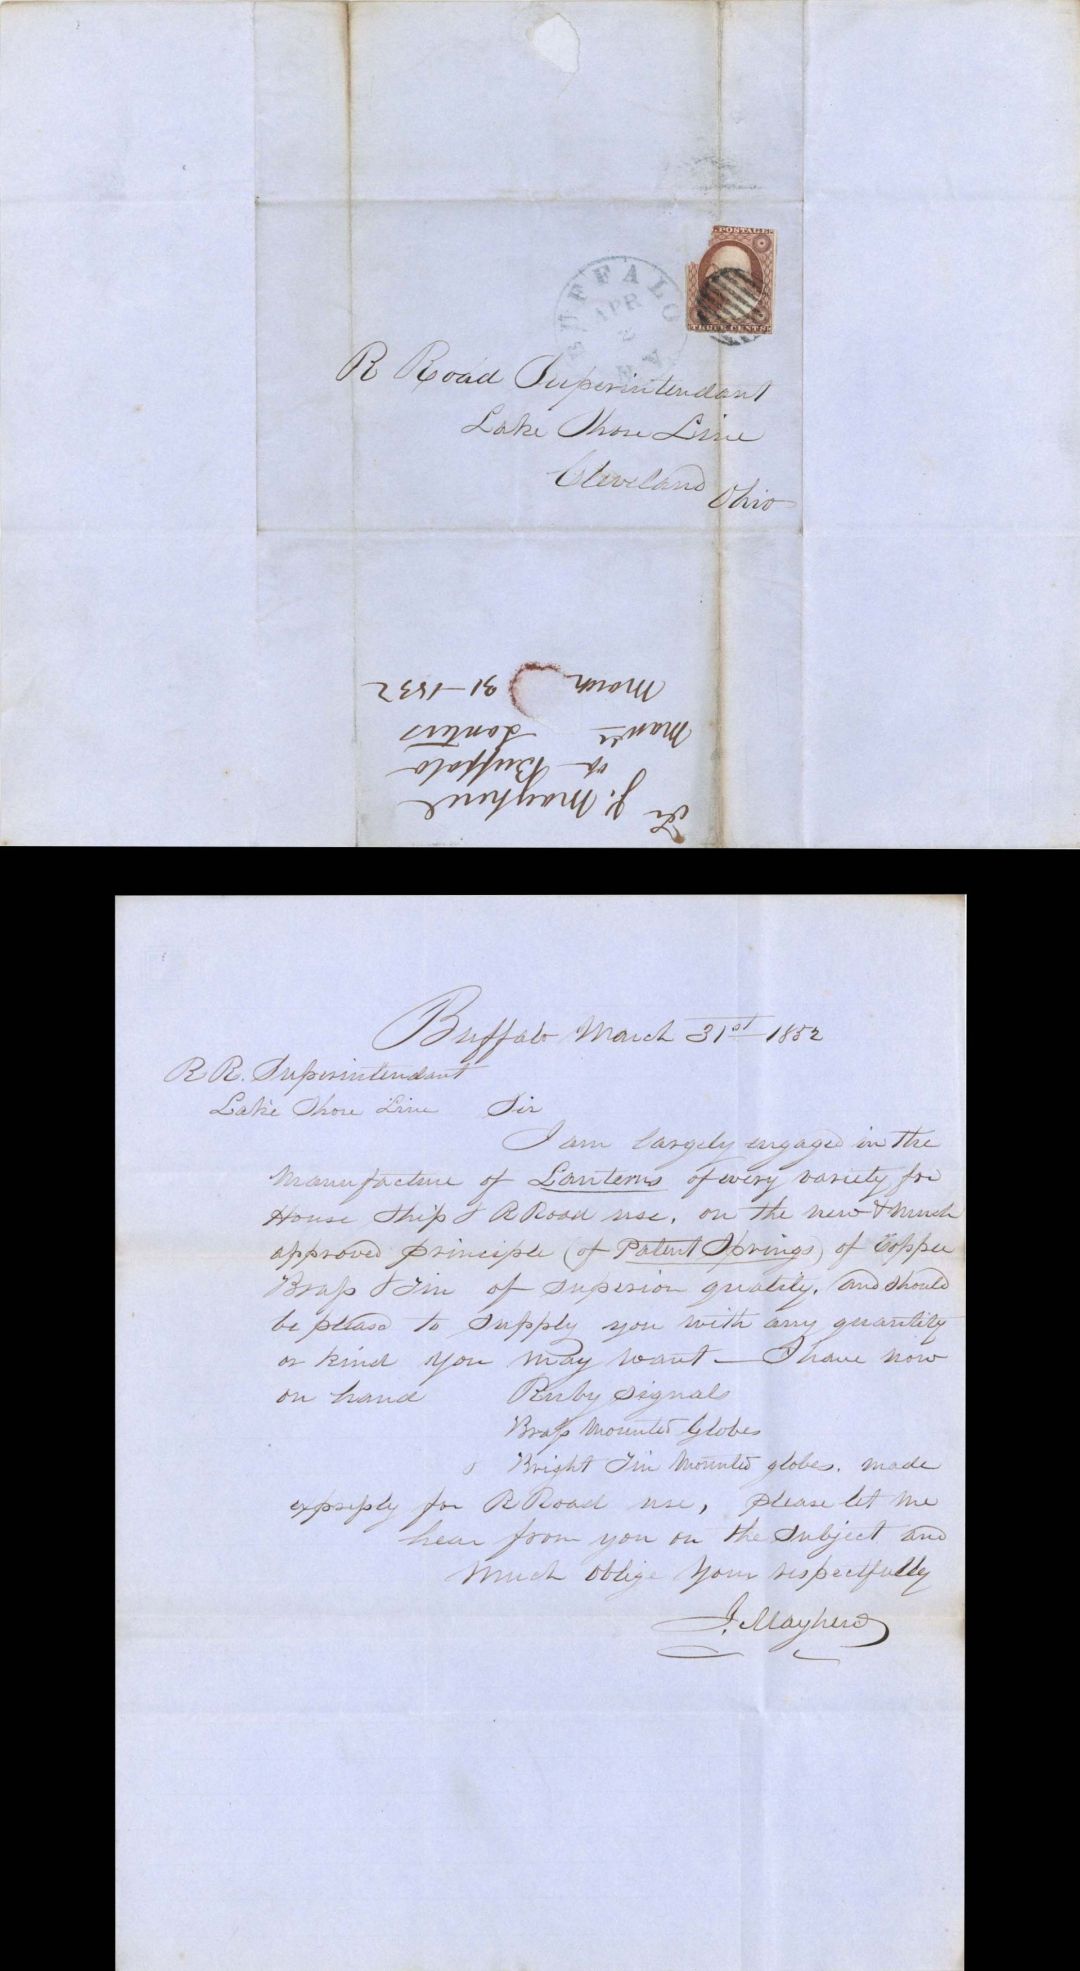 POSTAGE
THREE CENTS
BUFFALO
APR
N.Y.
R Road Superintendant
Lake Shore Line
Cleveland
Ohio
Fr J. Mayher
Buffalo
Manfr Lanterns
March 31-1852
Buffalo March 31st 1852
R R. Superintendant
Lake Shore Line Sir
I am largely engaged in the
Manufacture of Lanterns of every variety for
House Ship & R Road use, on the new & much
approved principle (of Patent Springs) of Copper
Brass & Tin of superior quality. and should
be pleased to supply you with any quantity
or kind you may want — I have now
on hand Ruby Signals
Brass Mounted Globes
& Bright Tin Mounted globes. made
expressly for R Road use, please let me
hear from you on the Subject and
Much oblige Your respectfully
J. Mayher